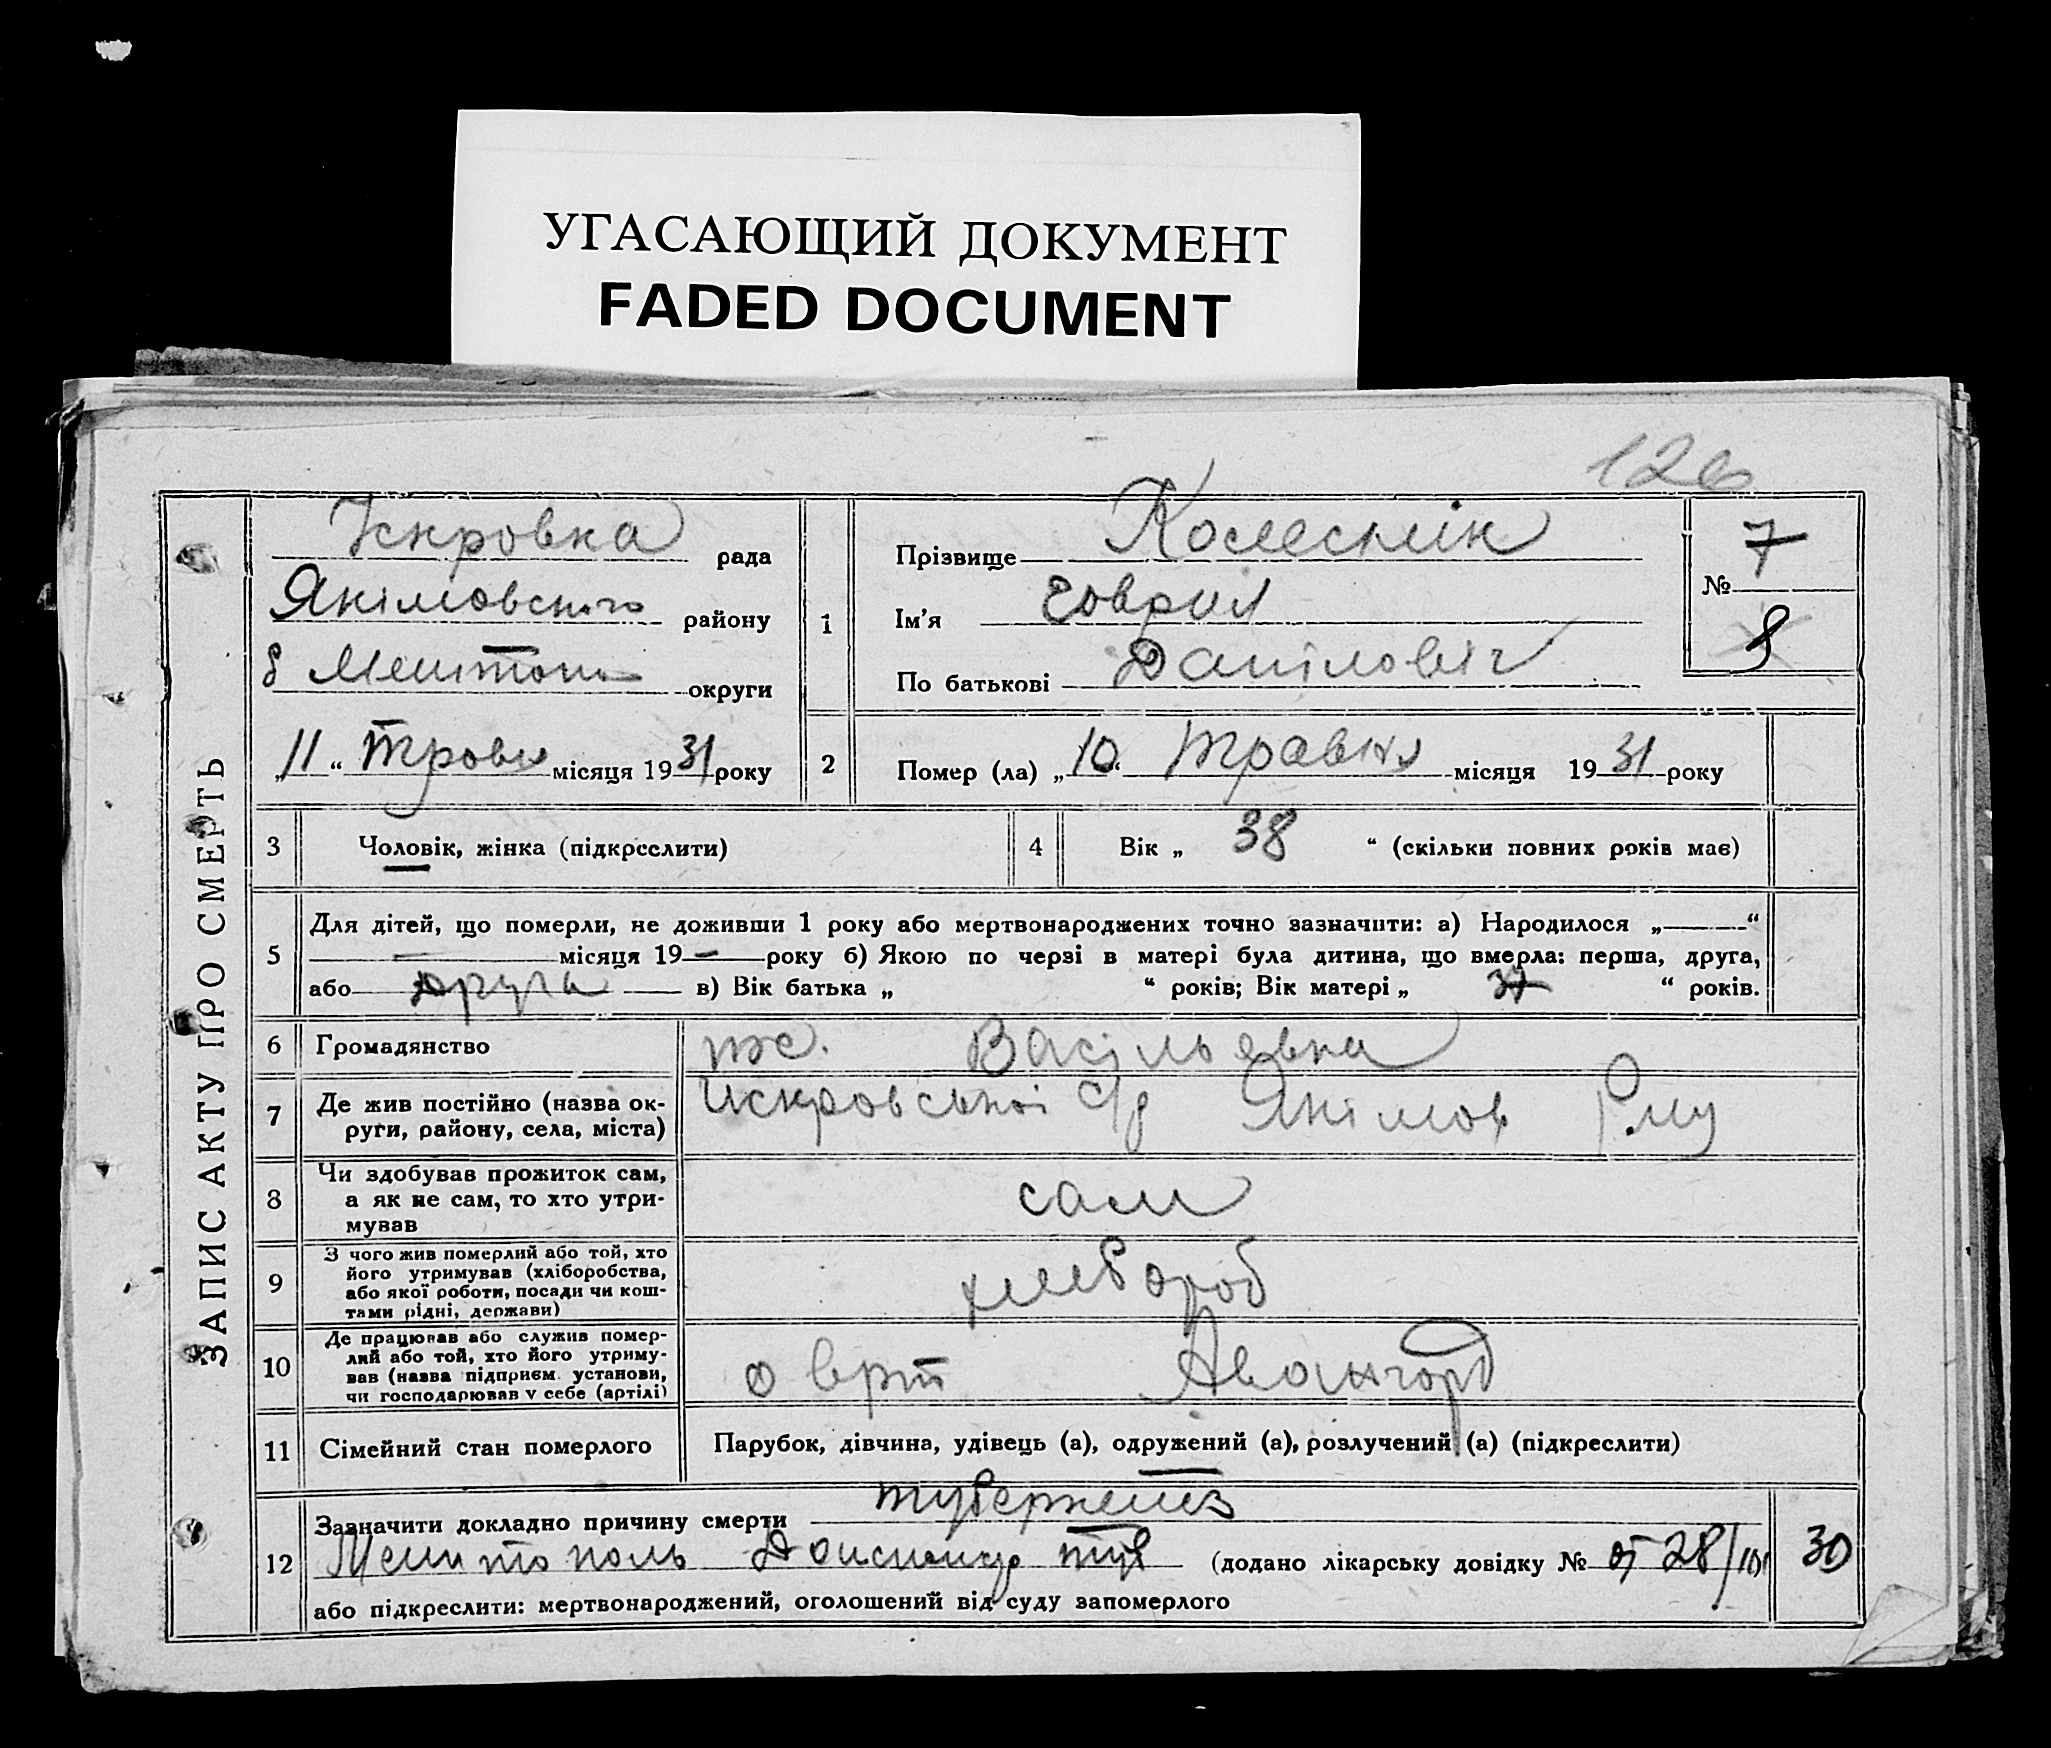 УГАСАЮЩИЙ ДОКУМЕНТ
FADED DOCUMENT
126
ЗАПИС АКТУ ПРО СМЕРТЬ
Іскровка рада
Якімовського району
б Мелітоп округи
„11“ Травня місяця 1931 року
1
Прізвище Колеснік
Ім'я Говрил
По батькові Даніловіч
№ 7
8
2 Помер (ла) „10“ травня місяця 1931 року
3 Чоловік, жінка (підкреслити)
4 Вік „ 38 “ (скільки повних років має)
5 Для дітей, що померли, не доживши 1 року або мертвонароджених точно зазначити: а) Народилося „ “
місяця 19 — року б) Якою по черзі в матері була дитина, що вмерла: перша, друга,
або друга в) Вік батька „ “ років; Вік матері „ 37 “ років.
6 Громадянство Васільевка
7 Де жив постійно (назва ок-
руги, району, села, міста) Искровської с/р Якімов Р.ну
8 Чи здобував прожиток сам,
а як не сам, то хто утри-
мував сам
9 З чого жив померлий або той, хто
його утримував (хліборобства,
або якої роботи, посади чи кош-
тами рідні, держави) хлебороб
10 Де працював або служив помер-
лий або той, хто його утриму-
вав (назва підприєм. установи,
чи господарював у себе (артілі) Авангорд
11 Сімейний стан померлого Парубок, дівчина, удівець (а), одружений (а), розлучений (а) (підкреслити)
12 Зазначити докладно причину смерти туберкелез
Мелитополь (додано лікарську довідку № от 28/ 30
або підкреслити: мертвонароджений, оголошений від суду запомерлого